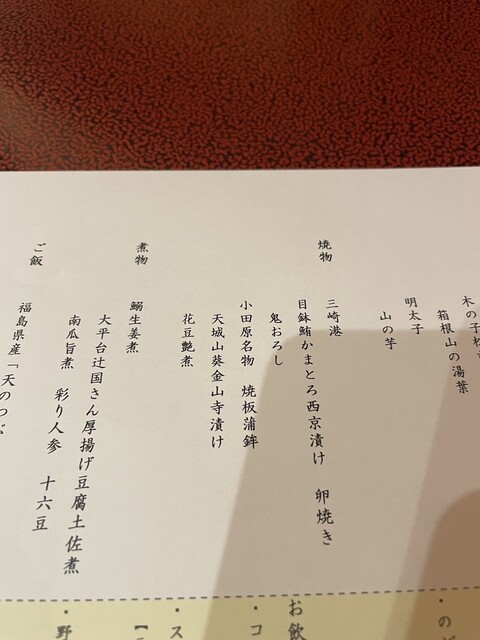 木の子
箱根山の湯葉
明太子
山の芋
焼物
三崎港
目鉢鮪かまとろ西京漬け 卵焼き
鬼おろし
小田原名物 焼板蒲鉾
天城山葵金山寺漬け
花豆艶煮
煮物
鰯生姜煮
大平台辻国さん厚揚げ豆腐土佐煮
南瓜旨煮 彩り人参 十六豆
ご飯
福島県産「天のつぶ
・の
お飲
・コ
・ス
【
・野